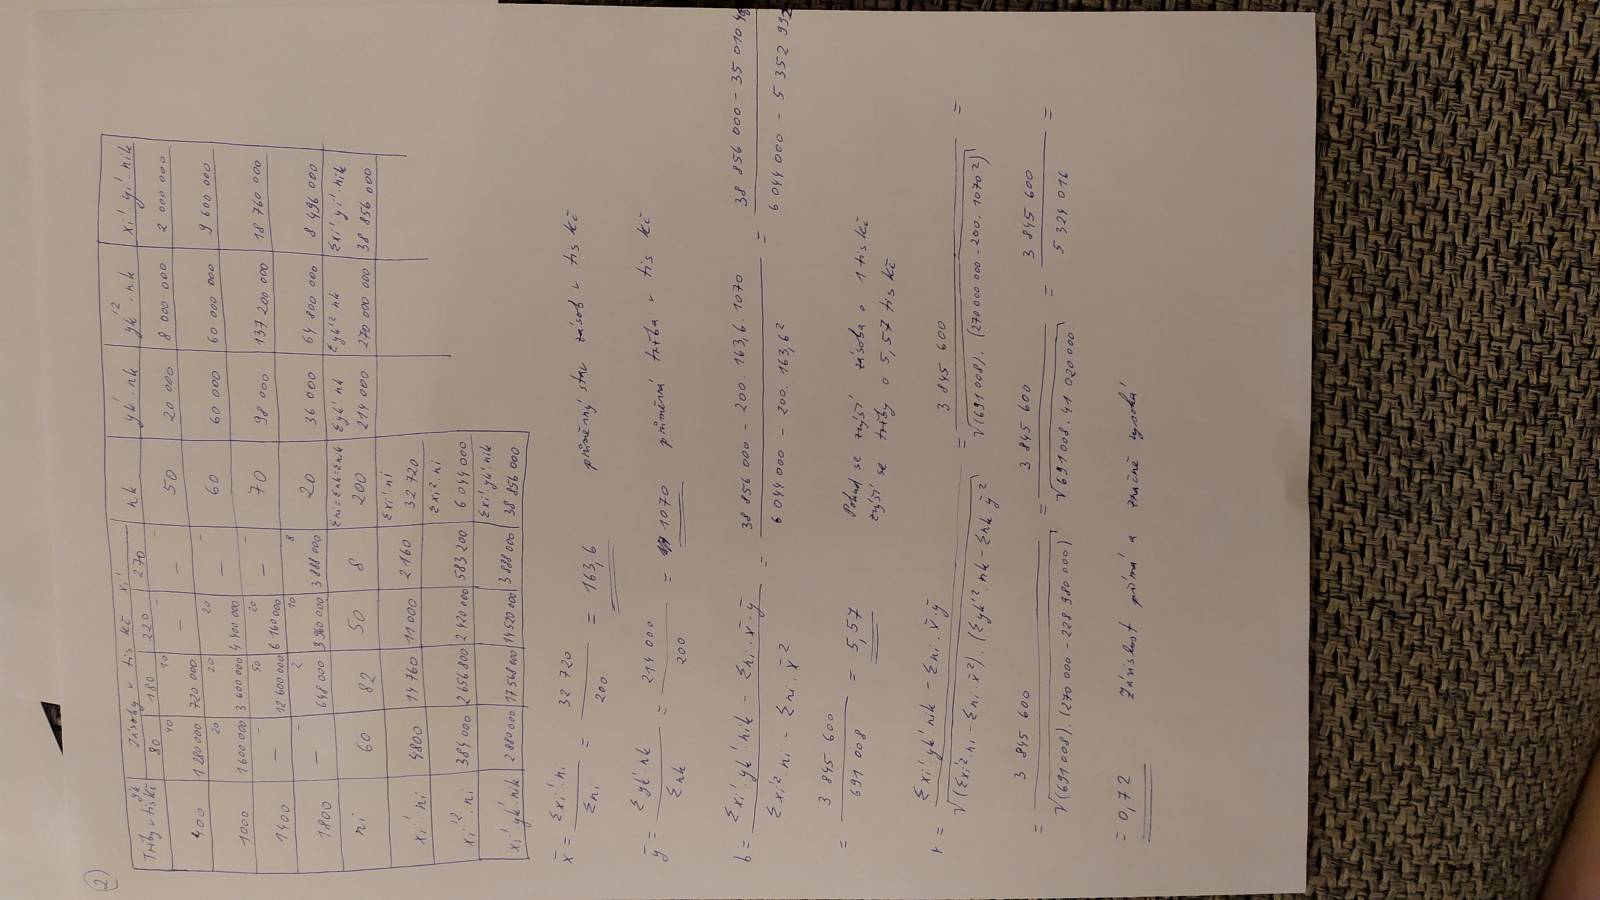 2)
Tržby v tis kč yk' | Zásoby v tis kč xi' | nk | yk'·nk | yk'²·nk | xi'·yi'·nik
80 | 180 | 220 | 270
400 | 1 280 000 40 | 720 000 10 | – | – | 50 | 20 000 | 8 000 000 | 2 000 000
1000 | 1 600 000 20 | 3 600 000 20 | 4 400 000 20 | – | 60 | 60 000 | 60 000 000 | 9 600 000
1400 | – | 12 600 000 50 | 6 160 000 20 | – | 70 | 98 000 | 137 200 000 | 18 760 000
1800 | – | 648 000 2 | 3 960 000 10 | 3 888 000 8 | 20 | 36 000 | 64 800 000 | 8 496 000
ni | 60 | 82 | 50 | 8 | Σni=Σnk=Σnik 200 | Σyk'·nk 214 000 | Σyk'²·nk 270 000 000 | Σxi'·yi'·nik 38 856 000
xi'·ni | 4800 | 14 760 | 11 000 | 2160 | Σxi'·ni 32 720
xi'²·ni | 384 000 | 2 656 800 | 2 420 000 | 583 200 | Σxi²·ni 6 044 000
xi'·yk'·nik | 2 880 000 | 17 568 000 | 14 520 000 | 3 888 000 | Σxi'·yk'·nik 38 856 000
x̄ = Σxi'·ni / Σni = 32 720 / 200 = 163,6 průměrný stav zásob v tis kč
ȳ = Σyk'·nk / Σnk = 214 000 / 200 = 1070 průměrná tržba v tis kč
b = Σxi'·yk'·nik − Σni·x̄·ȳ / Σxi'²·ni − Σni·x̄² = 38 856 000 − 200·163,6·1070 / 6 044 000 − 200·163,6² = 38 856 000 − 35 010 4 / 6 044 000 − 5 352 992
= 3 845 600 / 691 008 = 5,57 Pokud se zvýší zásoba o 1 tis kč
zvýší se tržby o 5,57 tis kč
r = Σxi'·yk'·nik − Σni·x̄·ȳ / √(Σxi'²·ni − Σni·x̄²)·(Σyk'²·nk − Σnk·ȳ²) = 3 845 600 / √(691 008)·(270 000 000 − 200·1070²) =
= 3 845 600 / √(691 008)·(270 000 − 228 980 000) = 3 845 600 / √691 008·41 020 000 = 3 845 600 / 5 324 016 =
= 0,72 Závislost přímá a značně vysoká